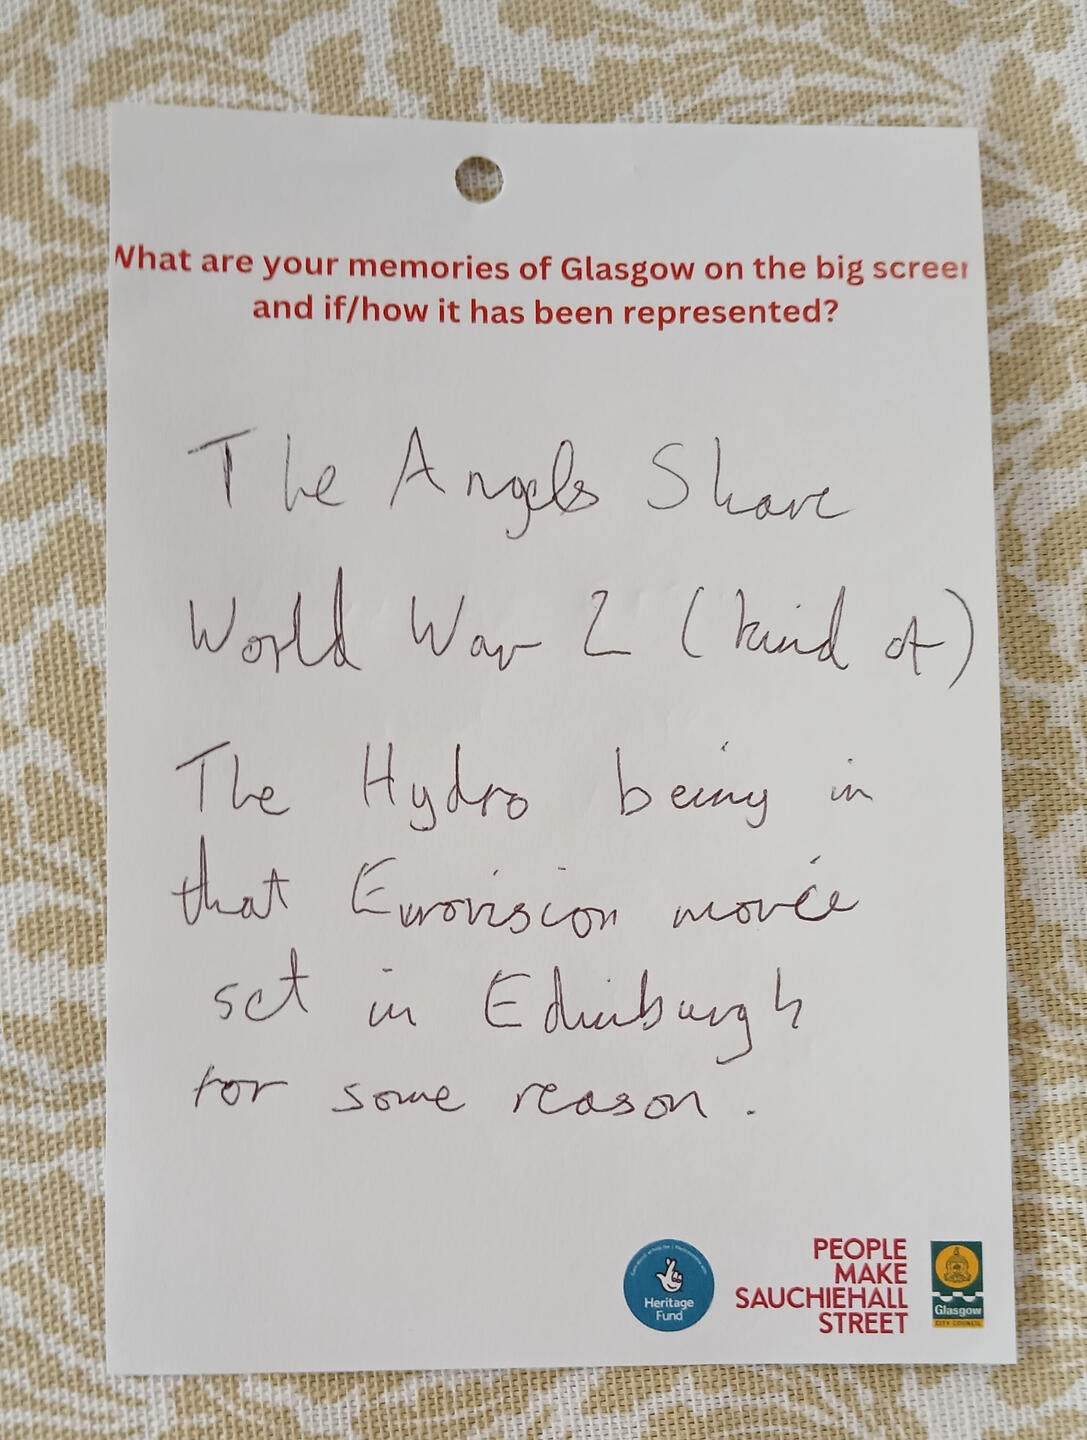 What are your memories of Glasgow on the big screen
and if/how it has been represented?
The Angels Share
World War 2 (kind of)
The Hydro being in
that Eurovision movie
set in Edinburgh
for some reason.
Heritage
Fund
PEOPLE
MAKE
SAUCHIEHALL
STREET
Glasgow
CITY COUNCIL